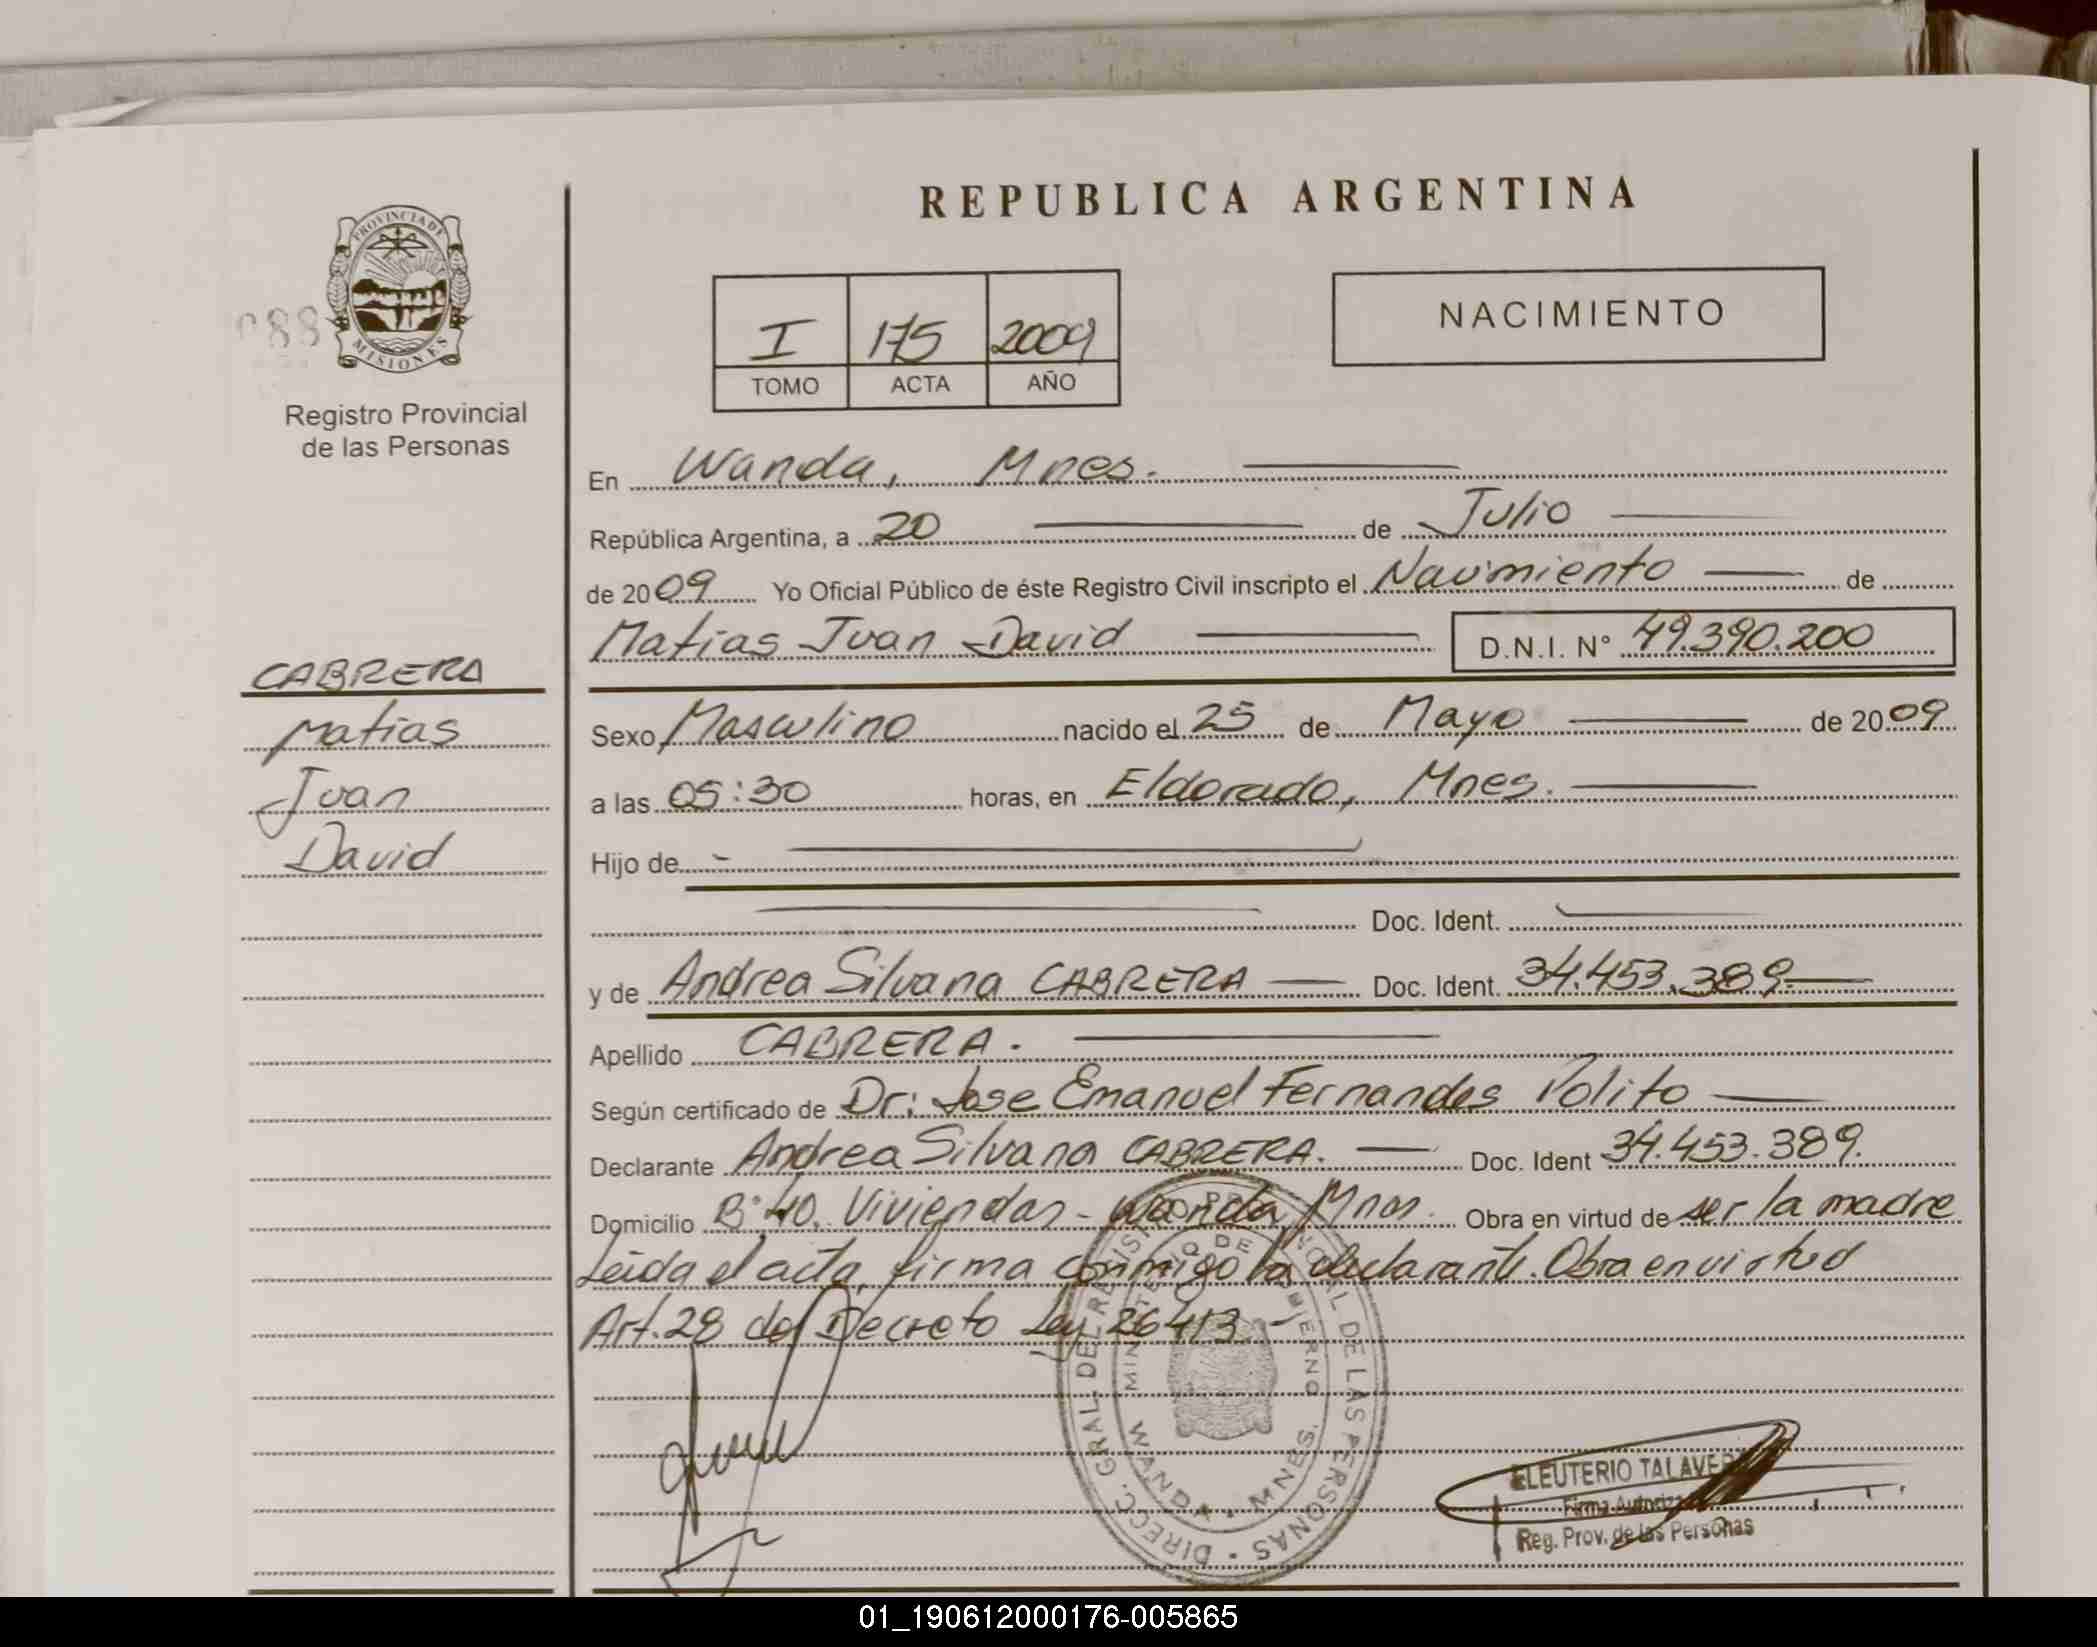 REPUBLICA ARGENTINA
PROVINCIA DE
MISIONES
088
Registro Provincial
de las Personas
I 175 2009
TOMO ACTA AÑO
NACIMIENTO
En Wanda, Mnes.
República Argentina, a 20 de Julio
de 2009 Yo Oficial Público de éste Registro Civil inscripto el Nacimiento de
Matias Juan David D.N.I. N° 49.390.200
CABRERA
Matias
Juan
David
Sexo Masculino nacido el 25 de Mayo de 2009
a las 05:30 horas, en Eldorado, Mnes.
Hijo de
Doc. Ident.
y de Andrea Silvana CABRERA Doc. Ident. 34.453.389
Apellido CABRERA.
Según certificado de Dr: Jose Emanuel Fernandes Polito
Declarante Andrea Silvana CABRERA. Doc. Ident 34.453.389.
Domicilio B° 40. Viviendas - Wanda Mnes. Obra en virtud de ser la madre
Leida el acta, firma conmigo la declarante. Obra en virtud
Art. 28 del Decreto Ley 26413.-
DIRECC. GRAL. DEL REGISTRO PROVINCIAL DE LAS PERSONAS
MINISTERIO DE GOBIERNO
WANDA - MNES.
ELEUTERIO TALAVERA
Firma Autoriza
Reg. Prov. de las Personas
01_190612000176-005865